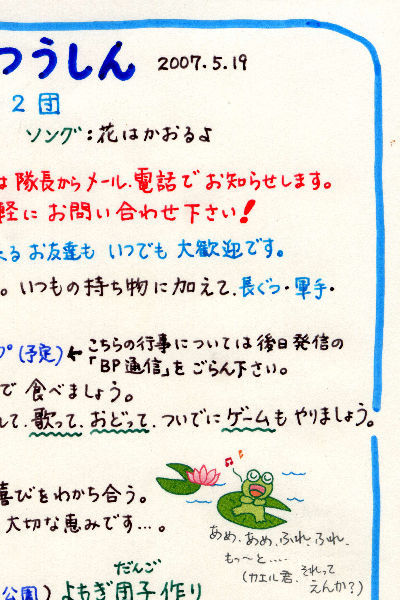 つうしん 2007.5.19
2団
ソング:花はかおるよ
は隊長からメール、電話でお知らせします。
軽にお問い合わせ下さい!
えるお友達も いつでも 大歓迎です。
。いつもの持ち物に加えて、長ぐつ・軍手・
プ(予定)←こちらの行事については後日発信の
「BP通信」をごらん下さい。
で 食べましょう。
して、歌って、おどって、ついでにゲームもやりましょう。
喜びをわかち合う。
大切な恵みです…。
あめ、あめ、ふれ、ふれ、
もっ〜と‥‥
(カエル君、それって
えんか?)
だんご
公園) よもぎ団子作り